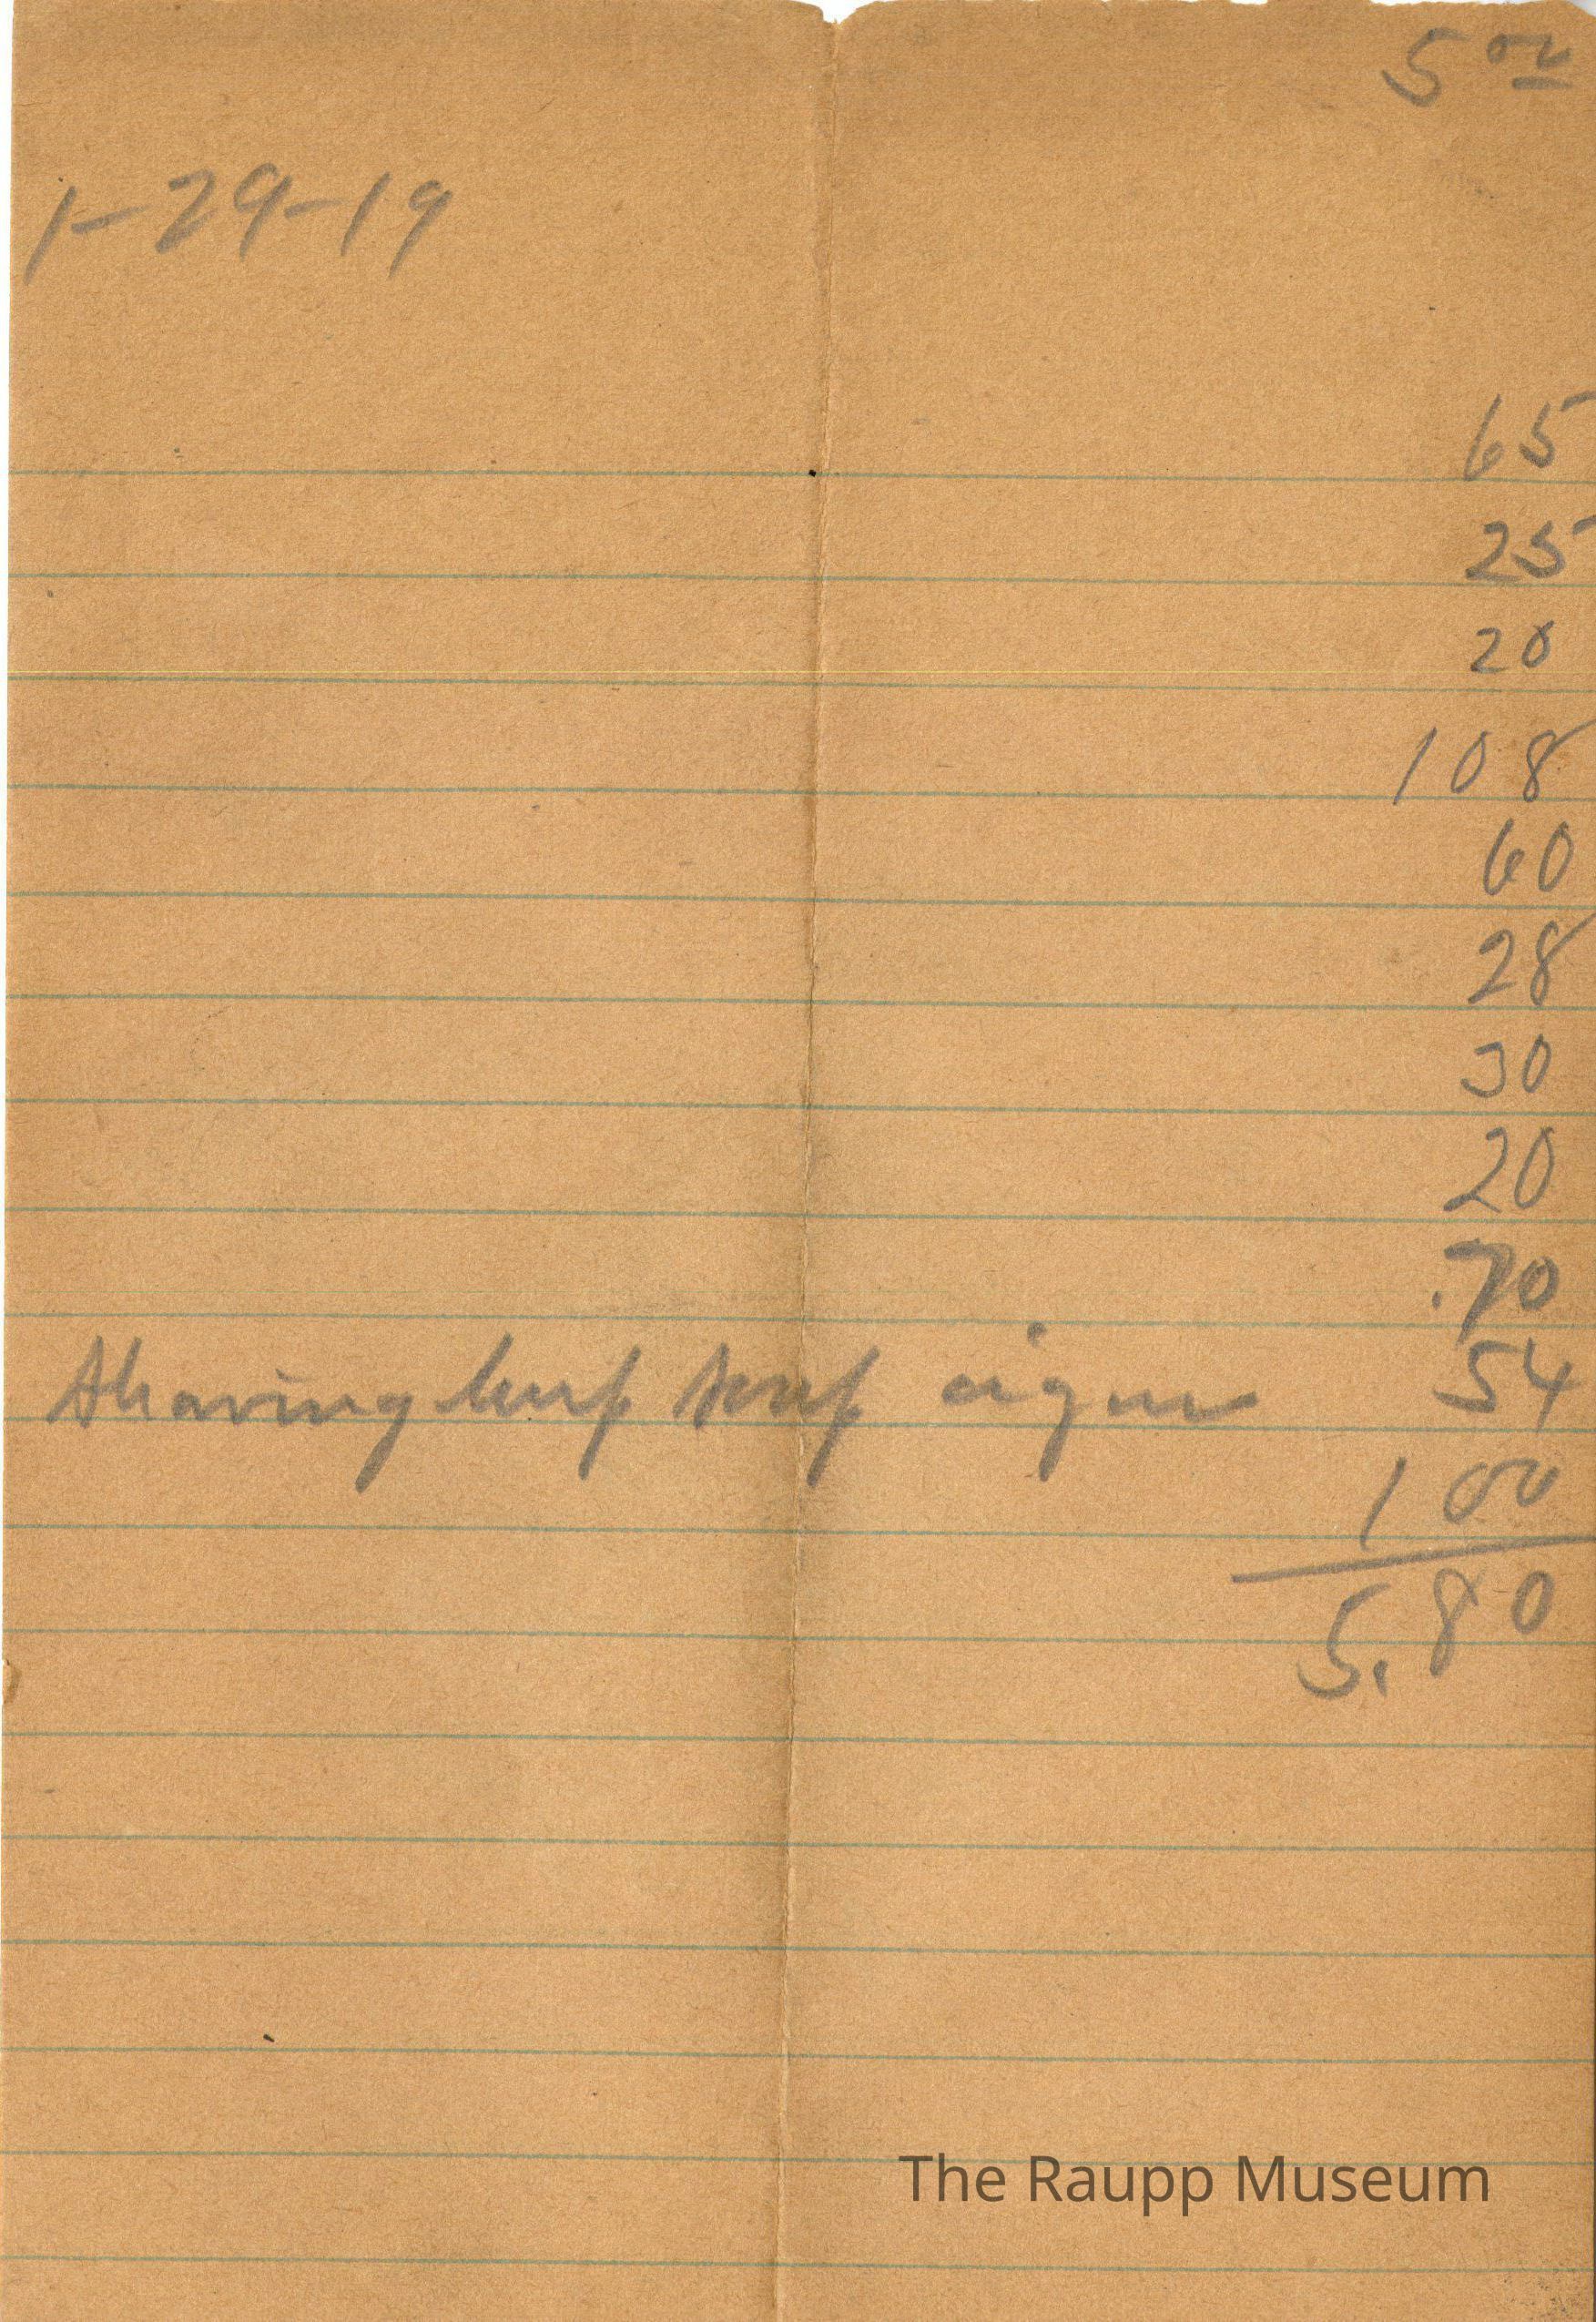 5 00
1-29-19
65
25
20
108
60
28
30
20
.70
Shaving 54
1 00
5.80
The Raupp Museum